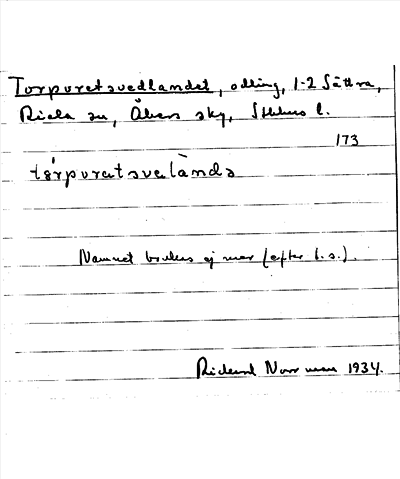 Torpuretsvedlandet, odling, 1-2 Sättra,
Riala sn, Åkers sky, Sthlms l.
173
tórpuretsvelànda
Namnet brukas ej mer (efter b.s.).
Rickard Norrman 1934.